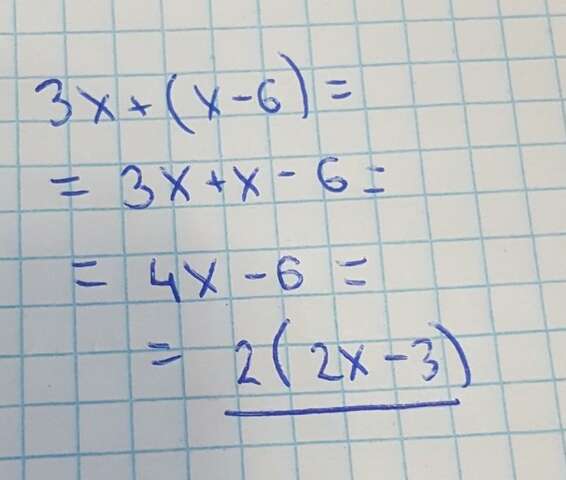 3x+(x-6)=
=3x+x-6=
=4x-6=
=2(2x-3)